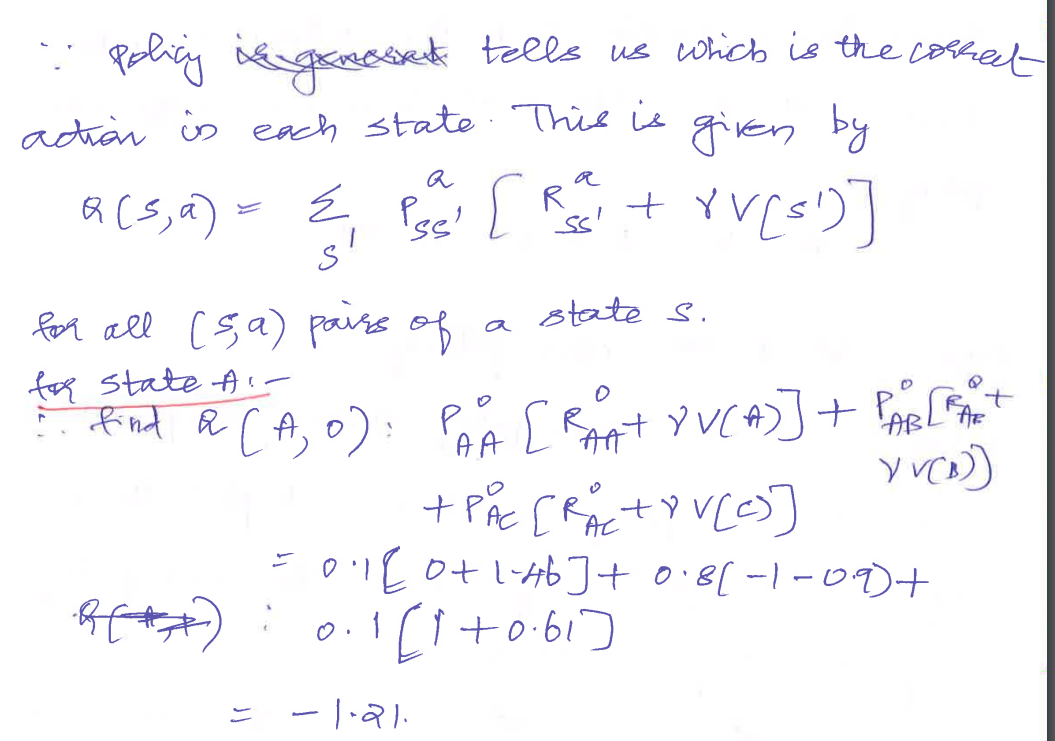 ∵ policy is general tells us which is the correct
action in each state. This is given by
Q(s,a) = Σ_s' P^a_ss' [R^a_ss' + γV(s')]
for all (s,a) pairs of a state s.
for state A:-
∴ find Q(A,0): P^0_AA [R^0_AA + γV(A)] + P^0_AB [R^0_AB +
γV(B)]
+ P^0_AC [R^0_AC + γV(C)]
= 0.1[0+1.46] + 0.8(-1-0.9)+
: 0.1[1+0.61]
= -1.21.